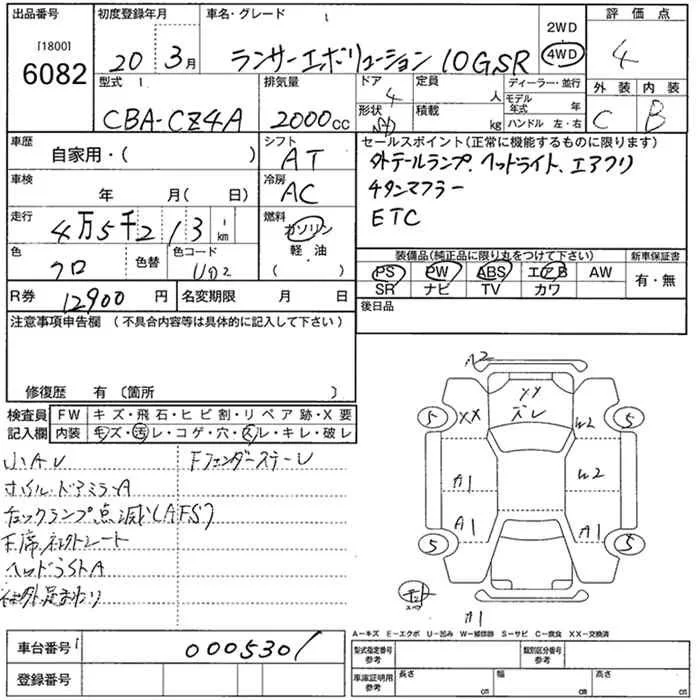 出品番号 初度登録年月 車名・グレード 評価点
[1800]
6082
20 3月 ランサーエボリューション10GSR 2WD 4WD 4
型式 排気量 ドア 定員 ディーラー・並行 外装 内装
CBA-CZ4A 2000cc 4 人 モデル年式 年 C B
形状 積載 kg ハンドル 左・右
車歴 シフト セールスポイント(正常に機能するものに限ります)
自家用・( ) AT 外テールランプ、ヘッドライト、エアクリ
車検 冷房 チタンマフラー
年 月(日) AC ETC
走行 燃料
4万5千213km ガソリン
色 色替 色コード 軽・油 装備品(純正品に限り丸をつけて下さい) 新車保証書
クロ ( ) PS PW ABS エアB AW 有・無
SR ナビ TV カワ
R券 12900円 名変期限 月 日 後日品
注意事項申告欄(不具合内容等は具体的に記入して下さい)
修復歴 有(箇所 )
検査員記入欄 FW キズ・飛石・ヒビ割・リペア跡・X要
内装 キズ・汚レ・コゲ・穴・スレ・キレ・破レ
小A Fフェンダーステー
ホイル・ドアミラーA
チェックランプ点滅(AFS)
A2
XX
XX
ズレ
5 5
W2
W2
A1
A1 A1
5 5
A1
車台番号 0005301
登録番号
A-キズ E-エクボ U-凹み W-補修跡 S-サビ C-腐食 XX-交換済
型式指定番号 参考 類別区分番号 参考
車庫証明用 参考 長さ cm 幅 cm 高さ cm